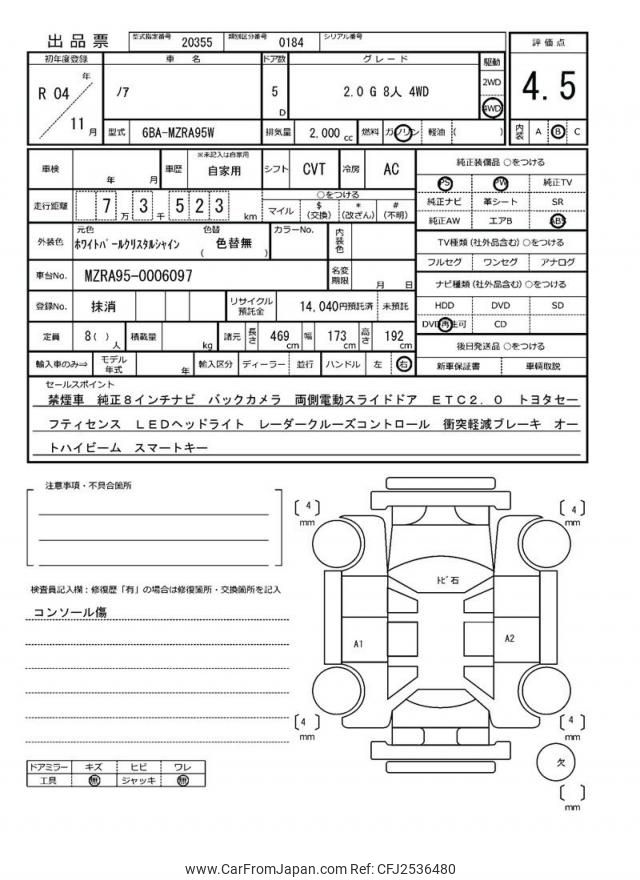 出品票 型式指定番号 20355 類別区分番号 0184 シリアル番号
評価点
4.5
内装 A B C
初年度登録 車名 ドア数 グレード 駆動
R 04 年 11 月
ノア
5 D
2.0 G 8人 4WD
2WD
4WD
型式 6BA-MZRA95W 排気量 2,000 cc 燃料 ガソリン 軽油 ( )
車検 年 月 車歴 ※未記入は自家用 自家用 シフト CVT 冷房 AC
走行距離 7 万 3 千 5 2 3 km
○をつける
マイル $(交換) *(改ざん) #(不明)
外装色 元色 ホワイトパールクリスタルシャイン 色替 ( 色替無 ) カラーNo. 内装色
車台No. MZRA95-0006097 名変期限 月 日
登録No. 抹消 リサイクル預託金 14,040円預託済 未預託
定員 8( )人 積載量 kg 諸元 長さ 469 cm 幅 173 cm 高さ 192 cm
輸入車のみ⇒ モデル年式 年 輸入区分 ディーラー 並行 ハンドル 左 右
純正装備品 ○をつける
PS PW 純正TV
純正ナビ 革シート SR
純正AW エアB ABS
TV種類 (社外品含む) ○をつける
フルセグ ワンセグ アナログ
ナビ種類 (社外品含む) ○をつける
HDD DVD SD
DVD再生可 CD
後日発送品 ○をつける
新車保証書 車輌取説
セールスポイント
禁煙車 純正8インチナビ バックカメラ 両側電動スライドドア ETC2.0 トヨタセー
フティセンス LEDヘッドライト レーダークルーズコントロール 衝突軽減ブレーキ オー
トハイビーム スマートキー
注意事項・不具合箇所
検査員記入欄：修復歴「有」の場合は修復箇所・交換箇所を記入
コンソール傷
ドアミラー キズ ヒビ ワレ
工具 無 ジャッキ 無
〔 4 〕mm
〔 4 〕mm
トビ石
A1
A2
〔 4 〕mm
〔 4 〕mm
欠
〔 〕mm
www.CarFromJapan.com Ref: CFJ2536480